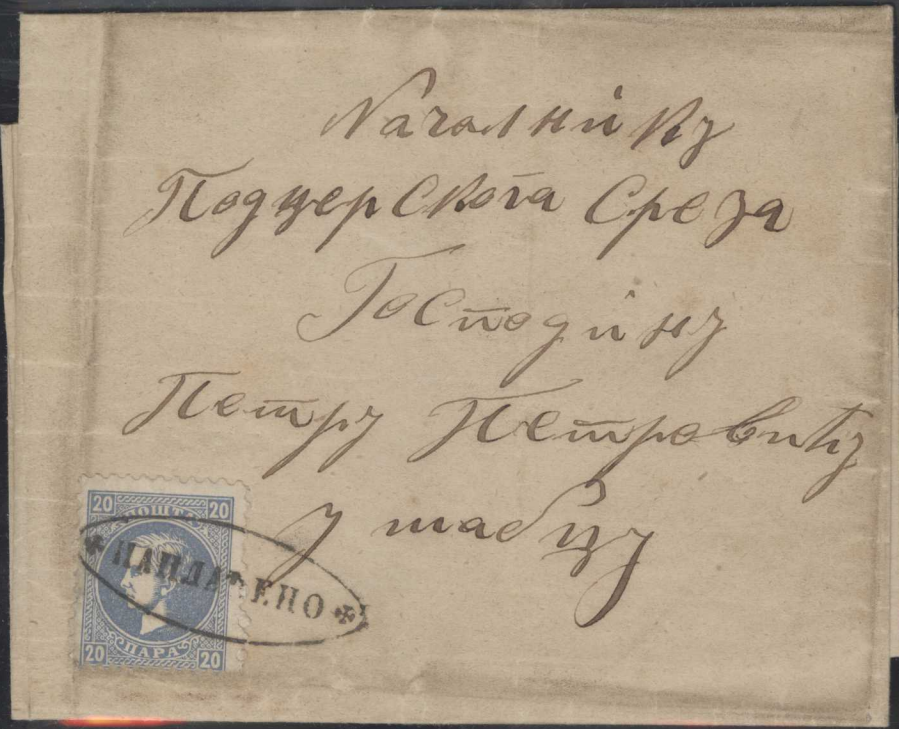 Началнику
Поцерскога Среза
Господину
Петру Петровићу
у шабцу
20 20
ПОШТА
НАПЛАЋЕНО
ПАРА
20 20